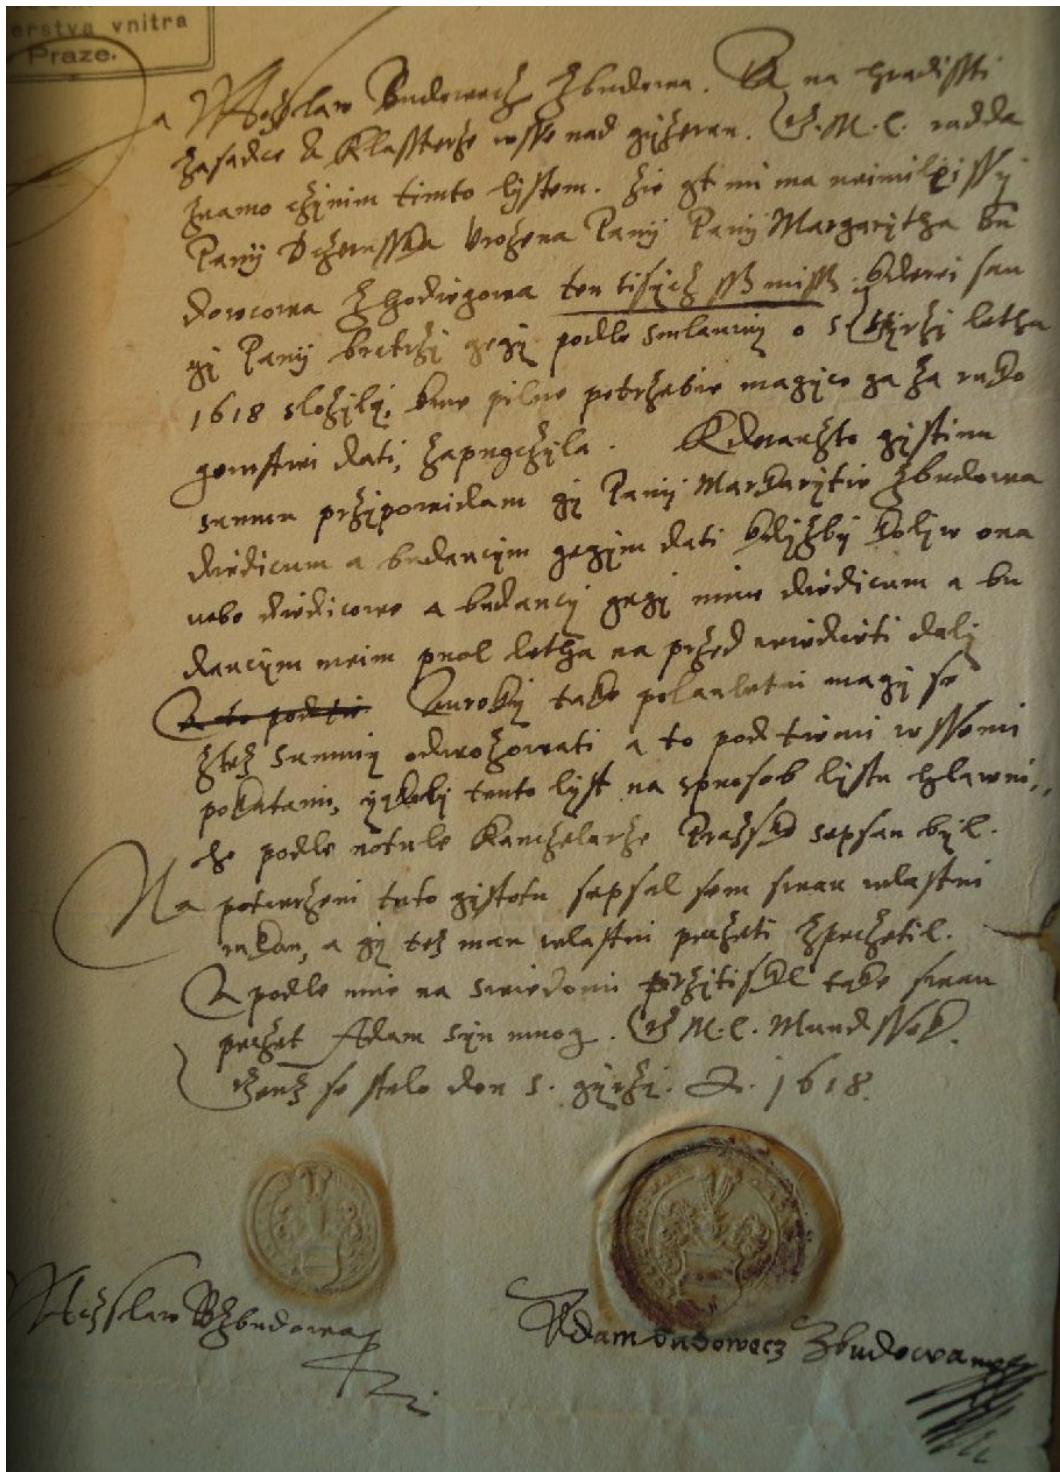 erstva vnitra
Praze.
a Waczlaw Budowecz Zbudowa. A na hradissti
Zasadce A Klassterze wsse nad gyzerau. G.M.C. radda
znamo czynim timto lystem. Zie gt mi ma neimileissy
Panij Dczerusska Urozena Panij Panij Margarytha Bu
dowcowa Zhodiegowa ten tisycz ssß missß kderei sau
gi Panij bratrzj gegj podle smlauwy o S. Gyrzi letha
1618 slozyli, kme pilne potrzebie magice ga za ruko
gemstwi dati, zapugczyla. Kderauzto gistinu
summu przipowidam gj Panij Markarytie Zbudowa
diedicum a budaucym gegim dati kdyzby koliw ona
nebo diedicowe a budaucy gegj mnie diedicum a bu
daucym meim puol letha na przed wiedieti dalj
A to podtie Auroky take polauletni magj se
ztez summy odwozowati a to pod tiemi wssemi
pokutami, yakoby tento lyst na spusob lystu hlawni,,
ho podle notule Kanczelarze Prazske sepsan byl.
Na potwrzeni tuto gistotu sepsal sem swau wlastni
rukau, a gj tez mau wlastni peczeti zpeczetil.
A podle mne na swiedomi przitiskl take swau
peczet Adam syn muog. G M.C. Mundssek.
Genz se stalo den S. gyrzi. A. 1618.
Waczslaw Bzbudowa
Adam Budowecz Zbudowa